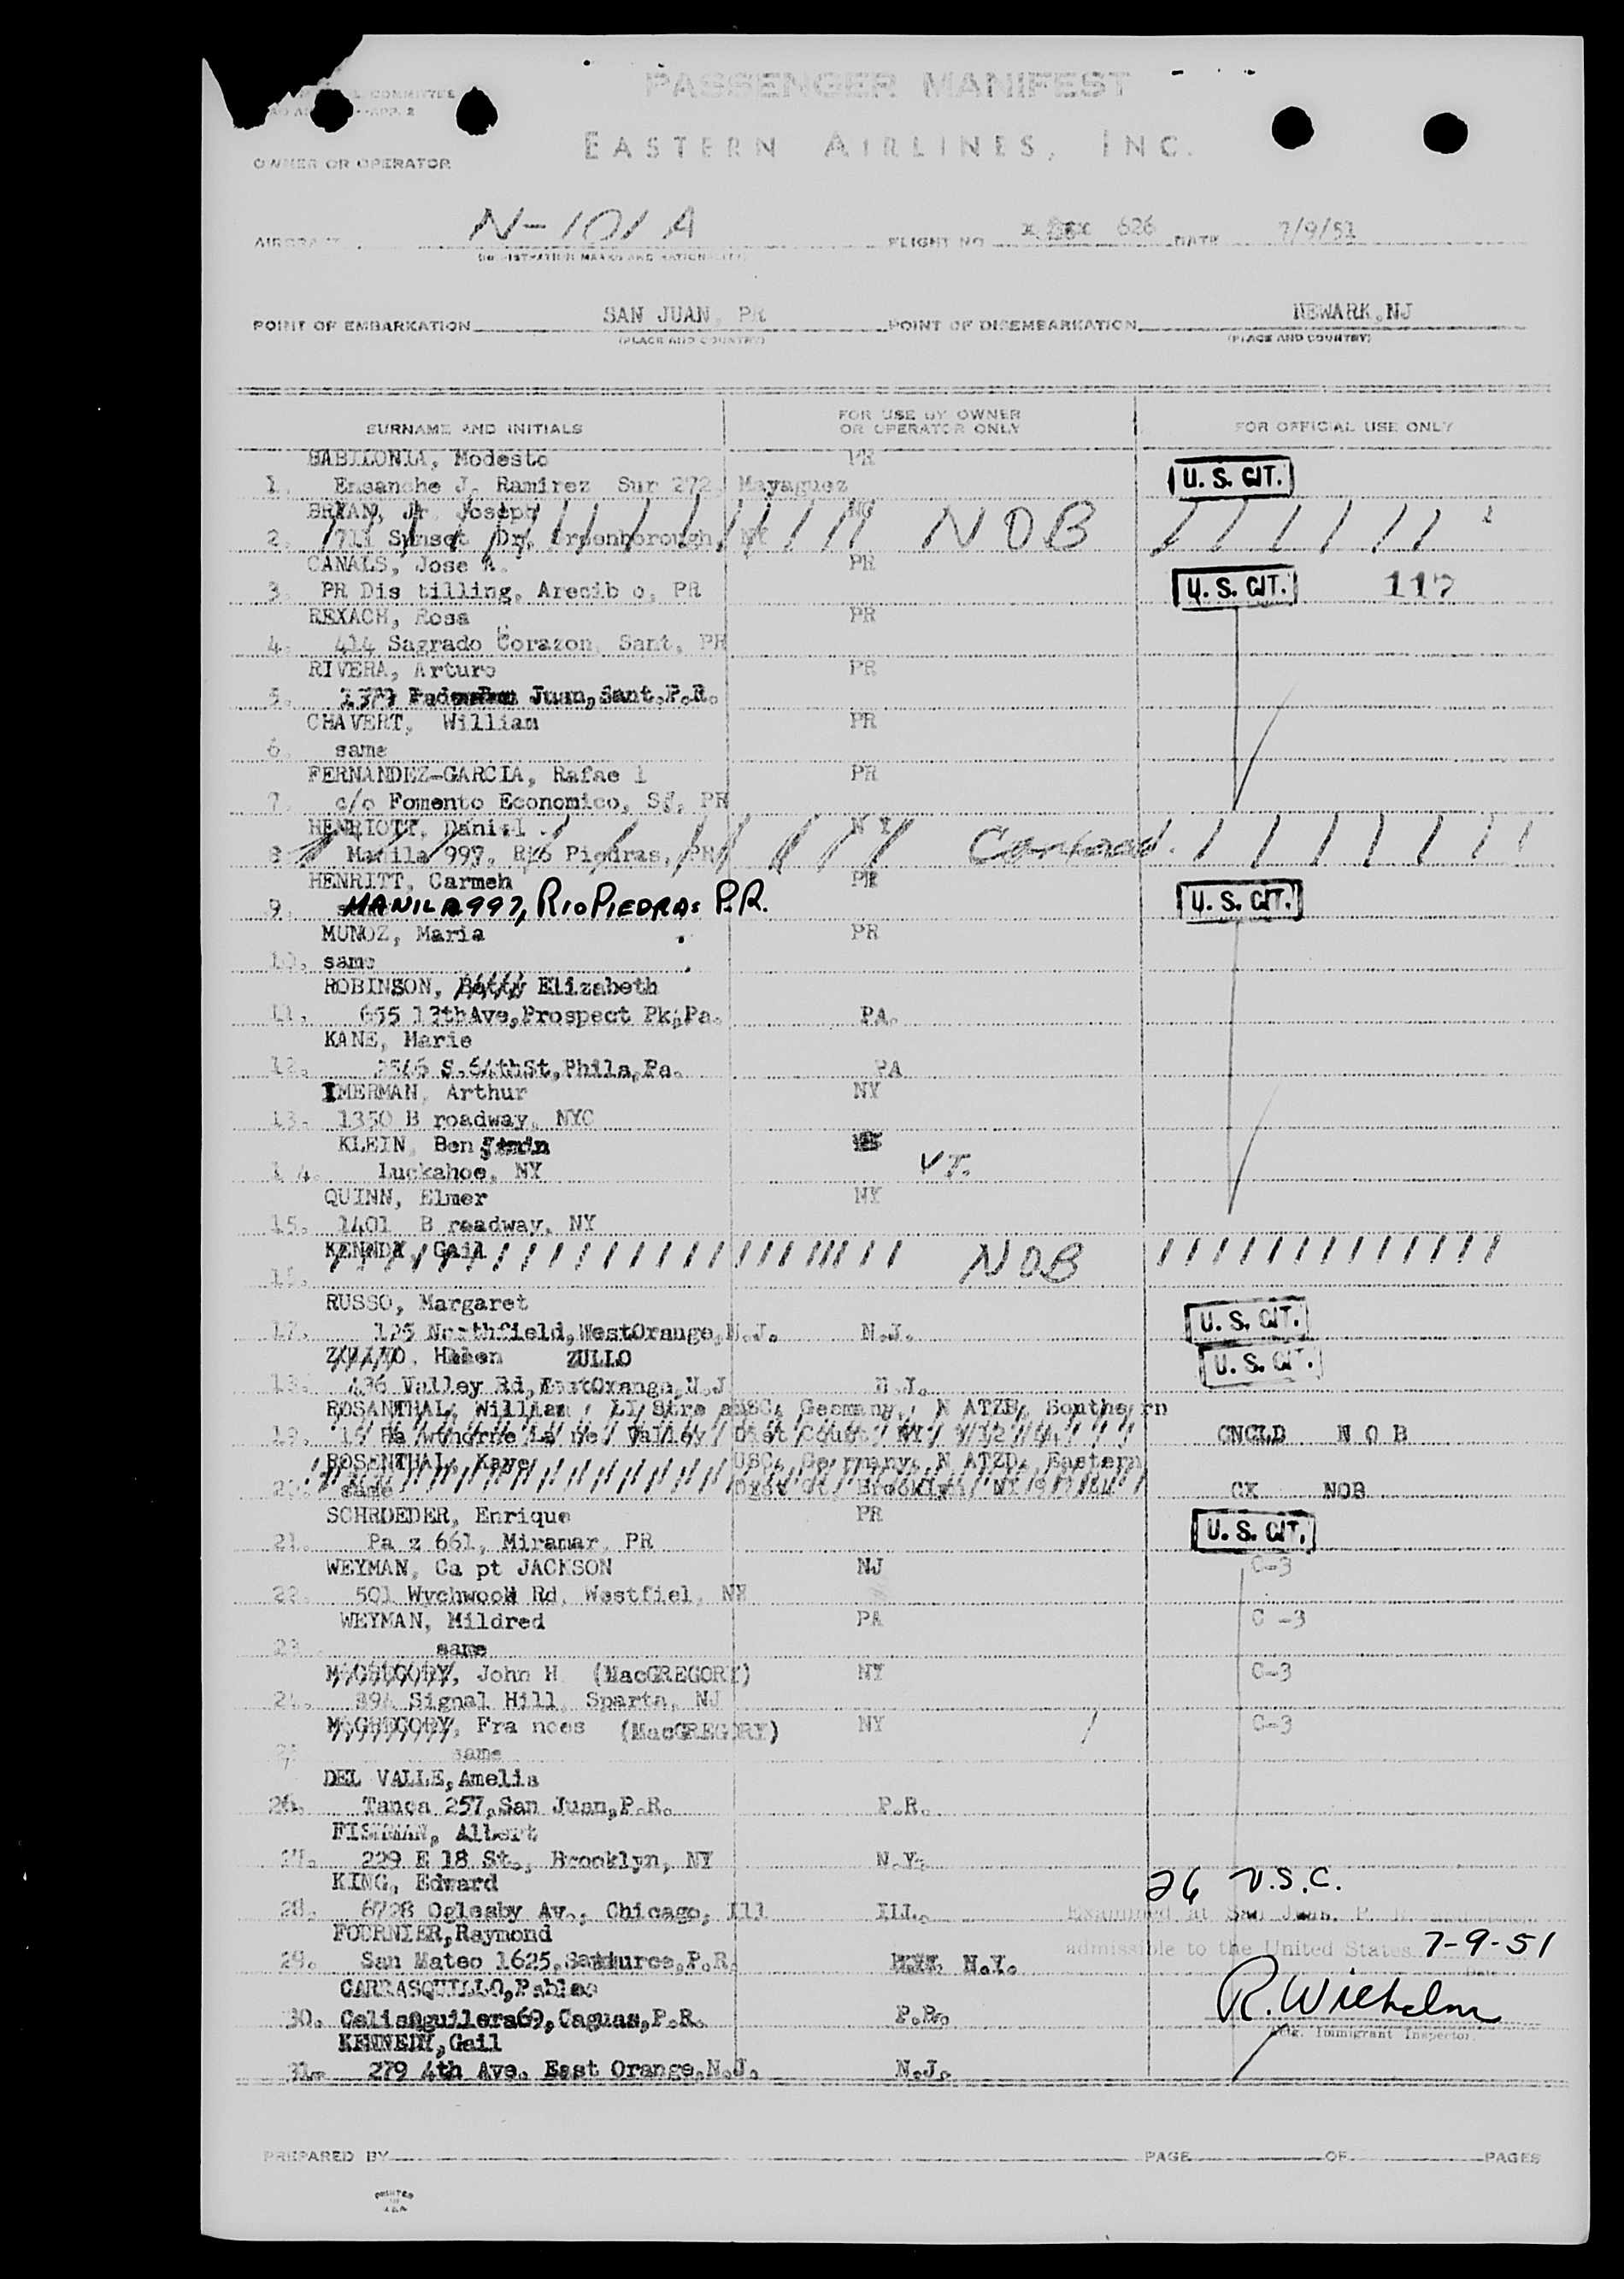 PASSENGER MANIFEST
COMMITTEE
APP. 2
EASTERN AIRLINES, INC.
OWNER OR OPERATOR
AIRCRAFT N-101A FLIGHT NO 626 DATE 7/9/51
(REGISTRATION MARKS AND NATIONALITY)
POINT OF EMBARKATION SAN JUAN, PR POINT OF DISEMBARKATION NEWARK,NJ
(PLACE AND COUNTRY) (PLACE AND COUNTRY)
SURNAME AND INITIALS FOR USE BY OWNER OR OPERATOR ONLY FOR OFFICIAL USE ONLY
BABILONIA, Modesto PR
1. Ensanche J. Ramirez Sur 272, Mayaguez U. S. CIT.
BRYAN, Jr Joseph NC NOB
2. 711 Sunset Dr, Greenborough, NC
CANALS, Jose A. PR
3. PR Dis tilling, Arecib o, PR U. S. CIT. 117
REXACH, Rosa PR
4. 414 Sagrado Corazon, Sant, PR
RIVERA, Arturo PR
5. Juan, Sant.P.R.
CHAVERT, William PR
6. same
FERNANDEZ-GARCIA, Rafae l PR
7. c/o Fomento Economico, SJ, PR
HENRIOTT, Daniel N Y
8. Manila 997, Rio Piedras, PR
HENRITT, Carmen PR
9. MANILA 997, RIO PIEDRAS P.R. U. S. CIT.
MUNOZ, Maria PR
10. same
ROBINSON, Betty Elizabeth
11. 655 13thAve,Prospect Pk,Pa. PA.
KANE, Marie
12. 2546 S.64thSt,Phila,Pa. PA
IMERMAN, Arthur NY
13. 1350 B roadway, NYC
KLEIN, Ben jamin
14. Tuckahoe, NY VT.
QUINN, Elmer NY
15. 1401 B roadway, NY
KENNDY, Gail NOB
16.
RUSSO, Margaret
17. 125 Northfield,WestOrange,N.J. N.J. U. S. CIT.
Helen ZULLO U. S. CIT.
18. 436 Valley Rd,EastOrange,N.J N.J.
ROSANTHAL, William USC, Germany, N ATZD, Southe rn
19. 15 Ha wthorne La ne, Valley Dist Court NY CNCLD N O B
ROSENTHAL, Kaye USC, Ge rmany, N ATZD, Eastern
20. same Dist Ct, Brooklyn, NY CX NOB
SCHROEDER, Enrique PR
21. Pa z 661, Miramar, PR U. S. CIT.
WEYMAN, Ca pt JACKSON NJ C-3
22. 501 Wychwood Rd, Westfiel, NJ
WEYMAN, Mildred PA C -3
23. same
McGREGORY, John H (MacGREGORY) NY C-3
24. 39A Signal Hill, Sparta, NJ
McGREGORY, Fra nces (MacGREGORY) NY C-3
25 same
DEL VALLE,Amelia
26. Tanca 257,San Juan,P.R. P.R.
FISHMAN, Albert
27. 229 E 18 St., Brooklyn, NY N.Y.
KING, Edward 26 U.S.C.
28. 6728 Oglesby Av., Chicago, Ill ILL. Examined at San Juan, P. R.
FOURNIER,Raymond admissible to the United States 7-9-51
29. San Mateo 1625,Santurce,P.R. N.Y. Date
CARRASQUILLO,Pablo R. Wilhelm
30. CalisAguilera69,Caguas,P.R. P.R.
KENNEDY,Gail Immigrant Inspector.
31. 279 4th Ave. East Orange,N.J. N.J.
PREPARED BY PAGE OF PAGES
PRINTED